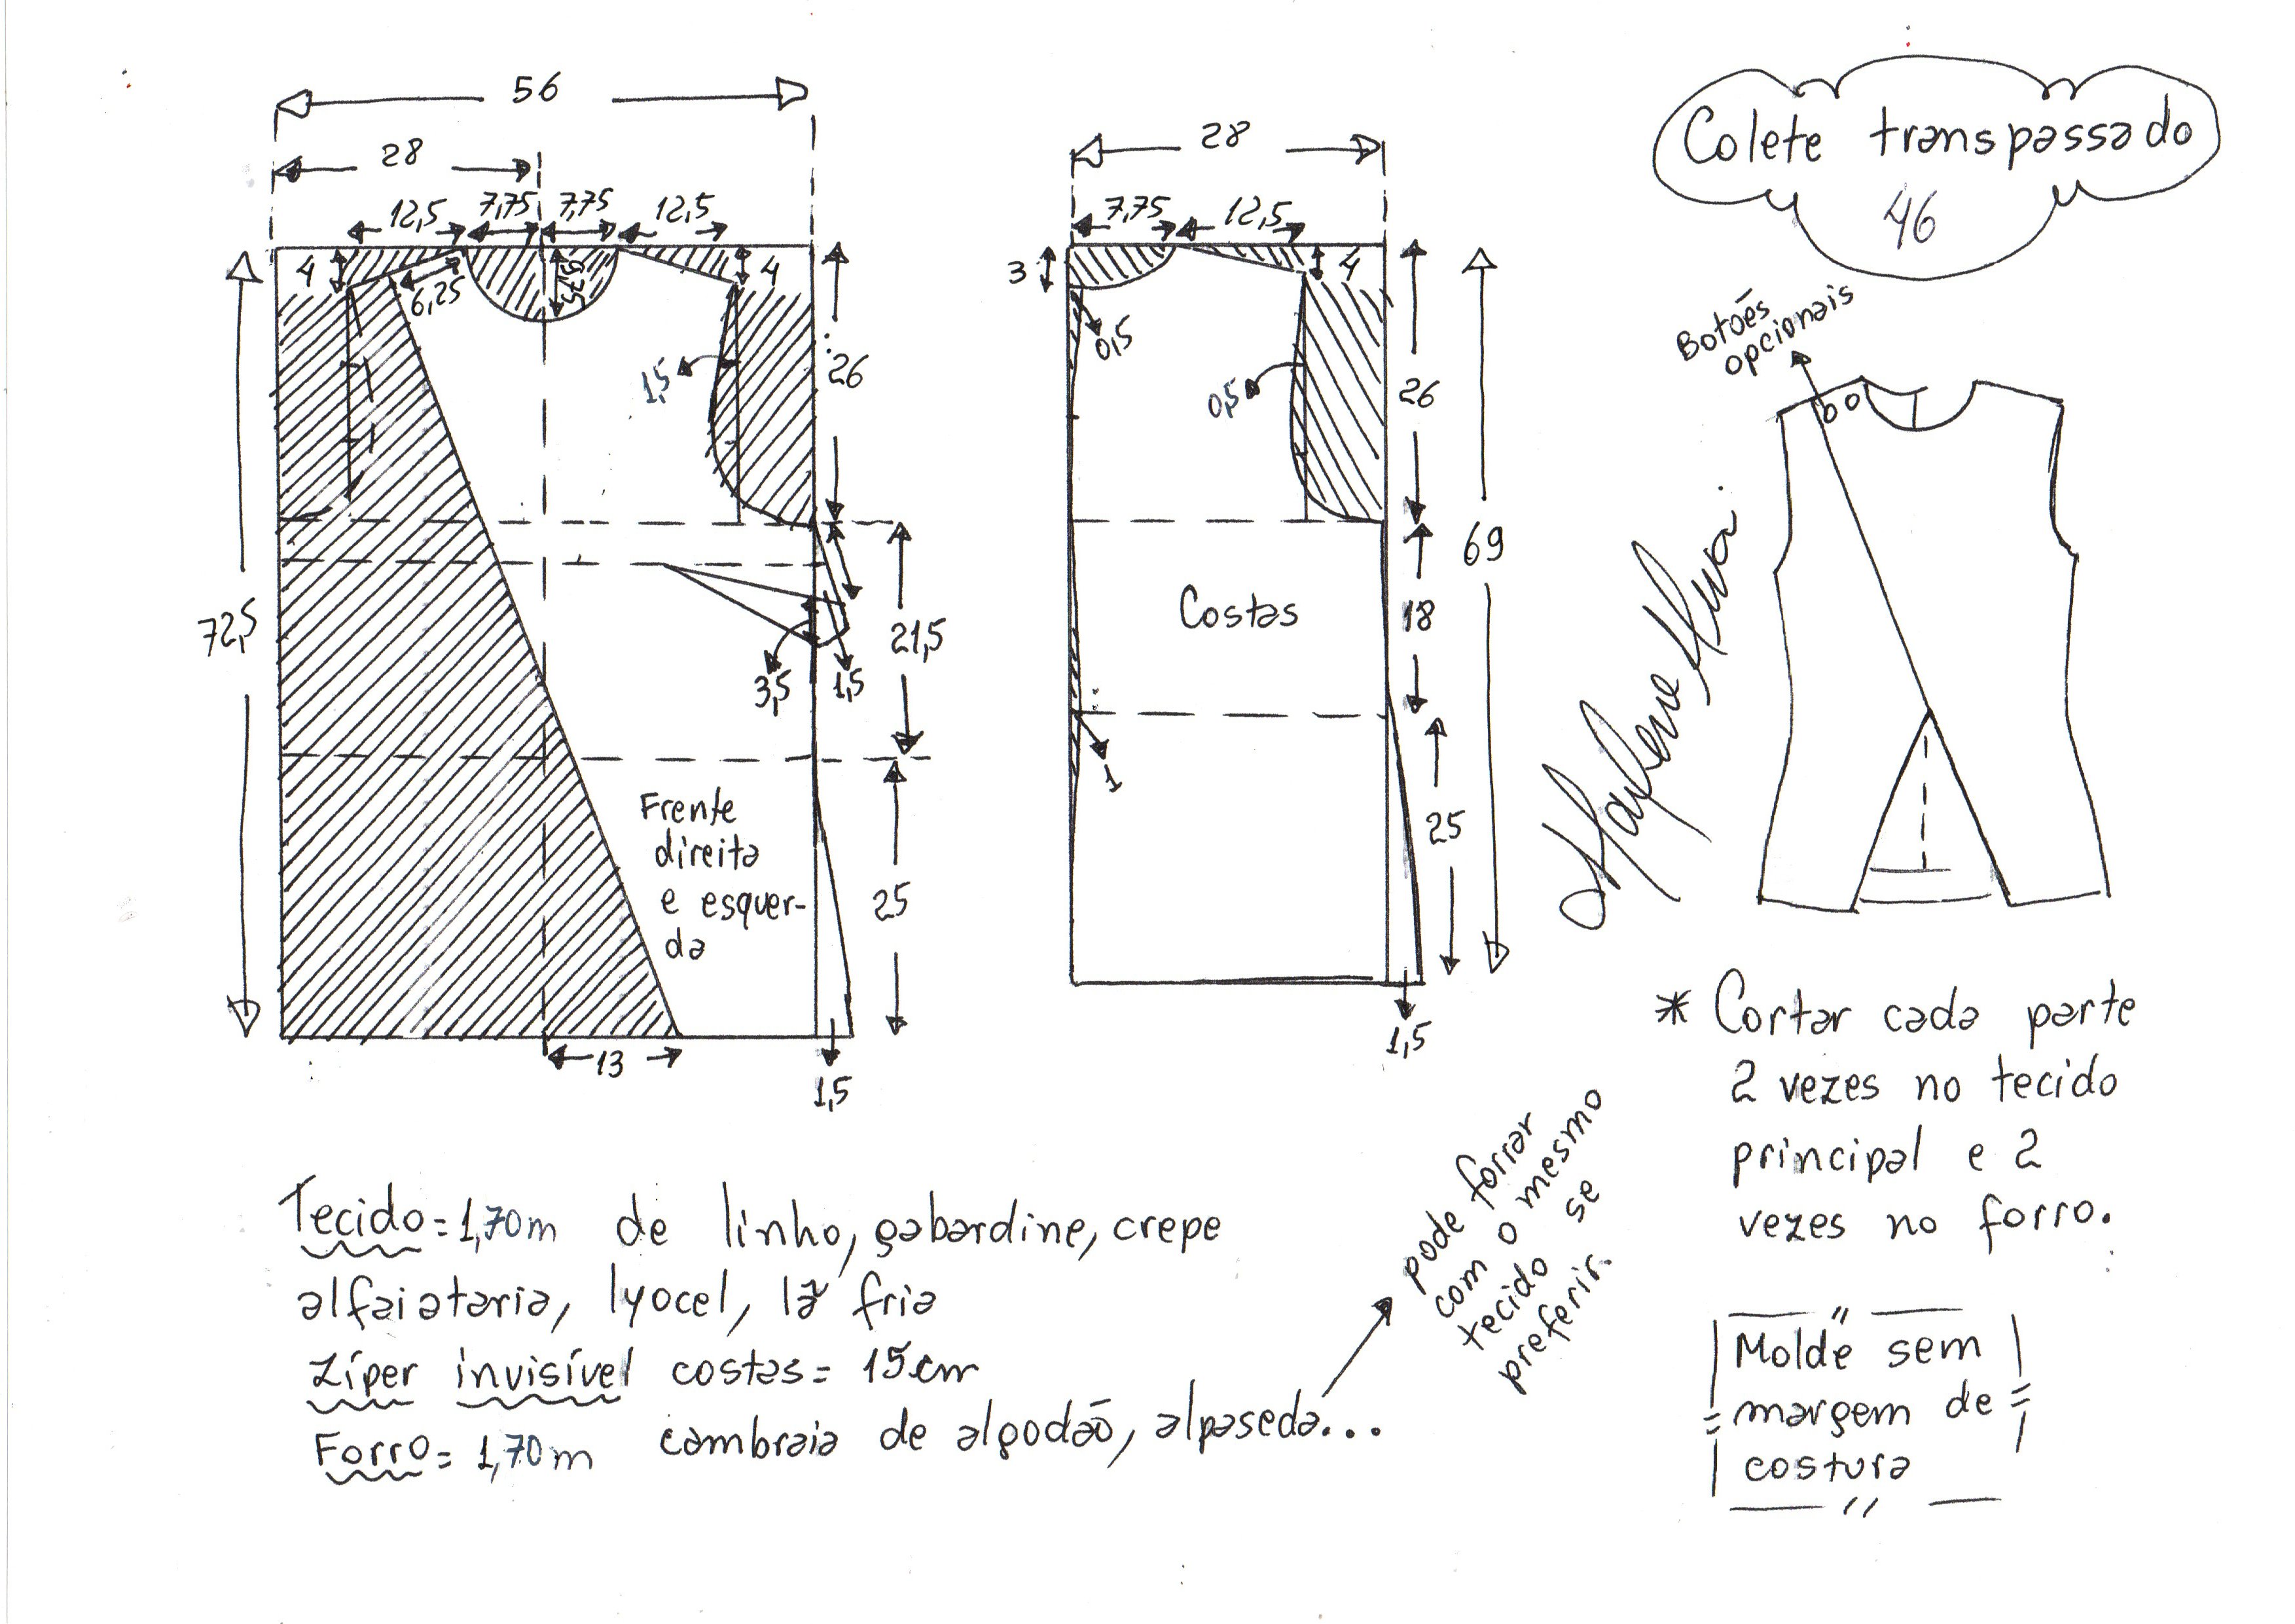 56
28
12,5 7,75 7,75 12,5
4
6,25
4
1,5
26
72,5
21,5
3,5
1,5
Frente
direita
e esquer-
da
25
13
1,5
28
7,75 12,5
3
4
0,5
0,5
26
69
Costas
18
1
25
1,5
Colete transpassado
46
Botoẽs
opcionais
* Cortar cada parte
2 vezes no tecido
principal e 2
vezes no forro.
Tecido = 1,70m de linho, gabardine, crepe
alfaiataria, lyocel, lã fria
Zíper invisível costas = 15cm
Forro = 1,70m cambraia de algodão, alpaseda...
pode forrar
com o mesmo
tecido se
preferir.
Molde sem
margem de
costura